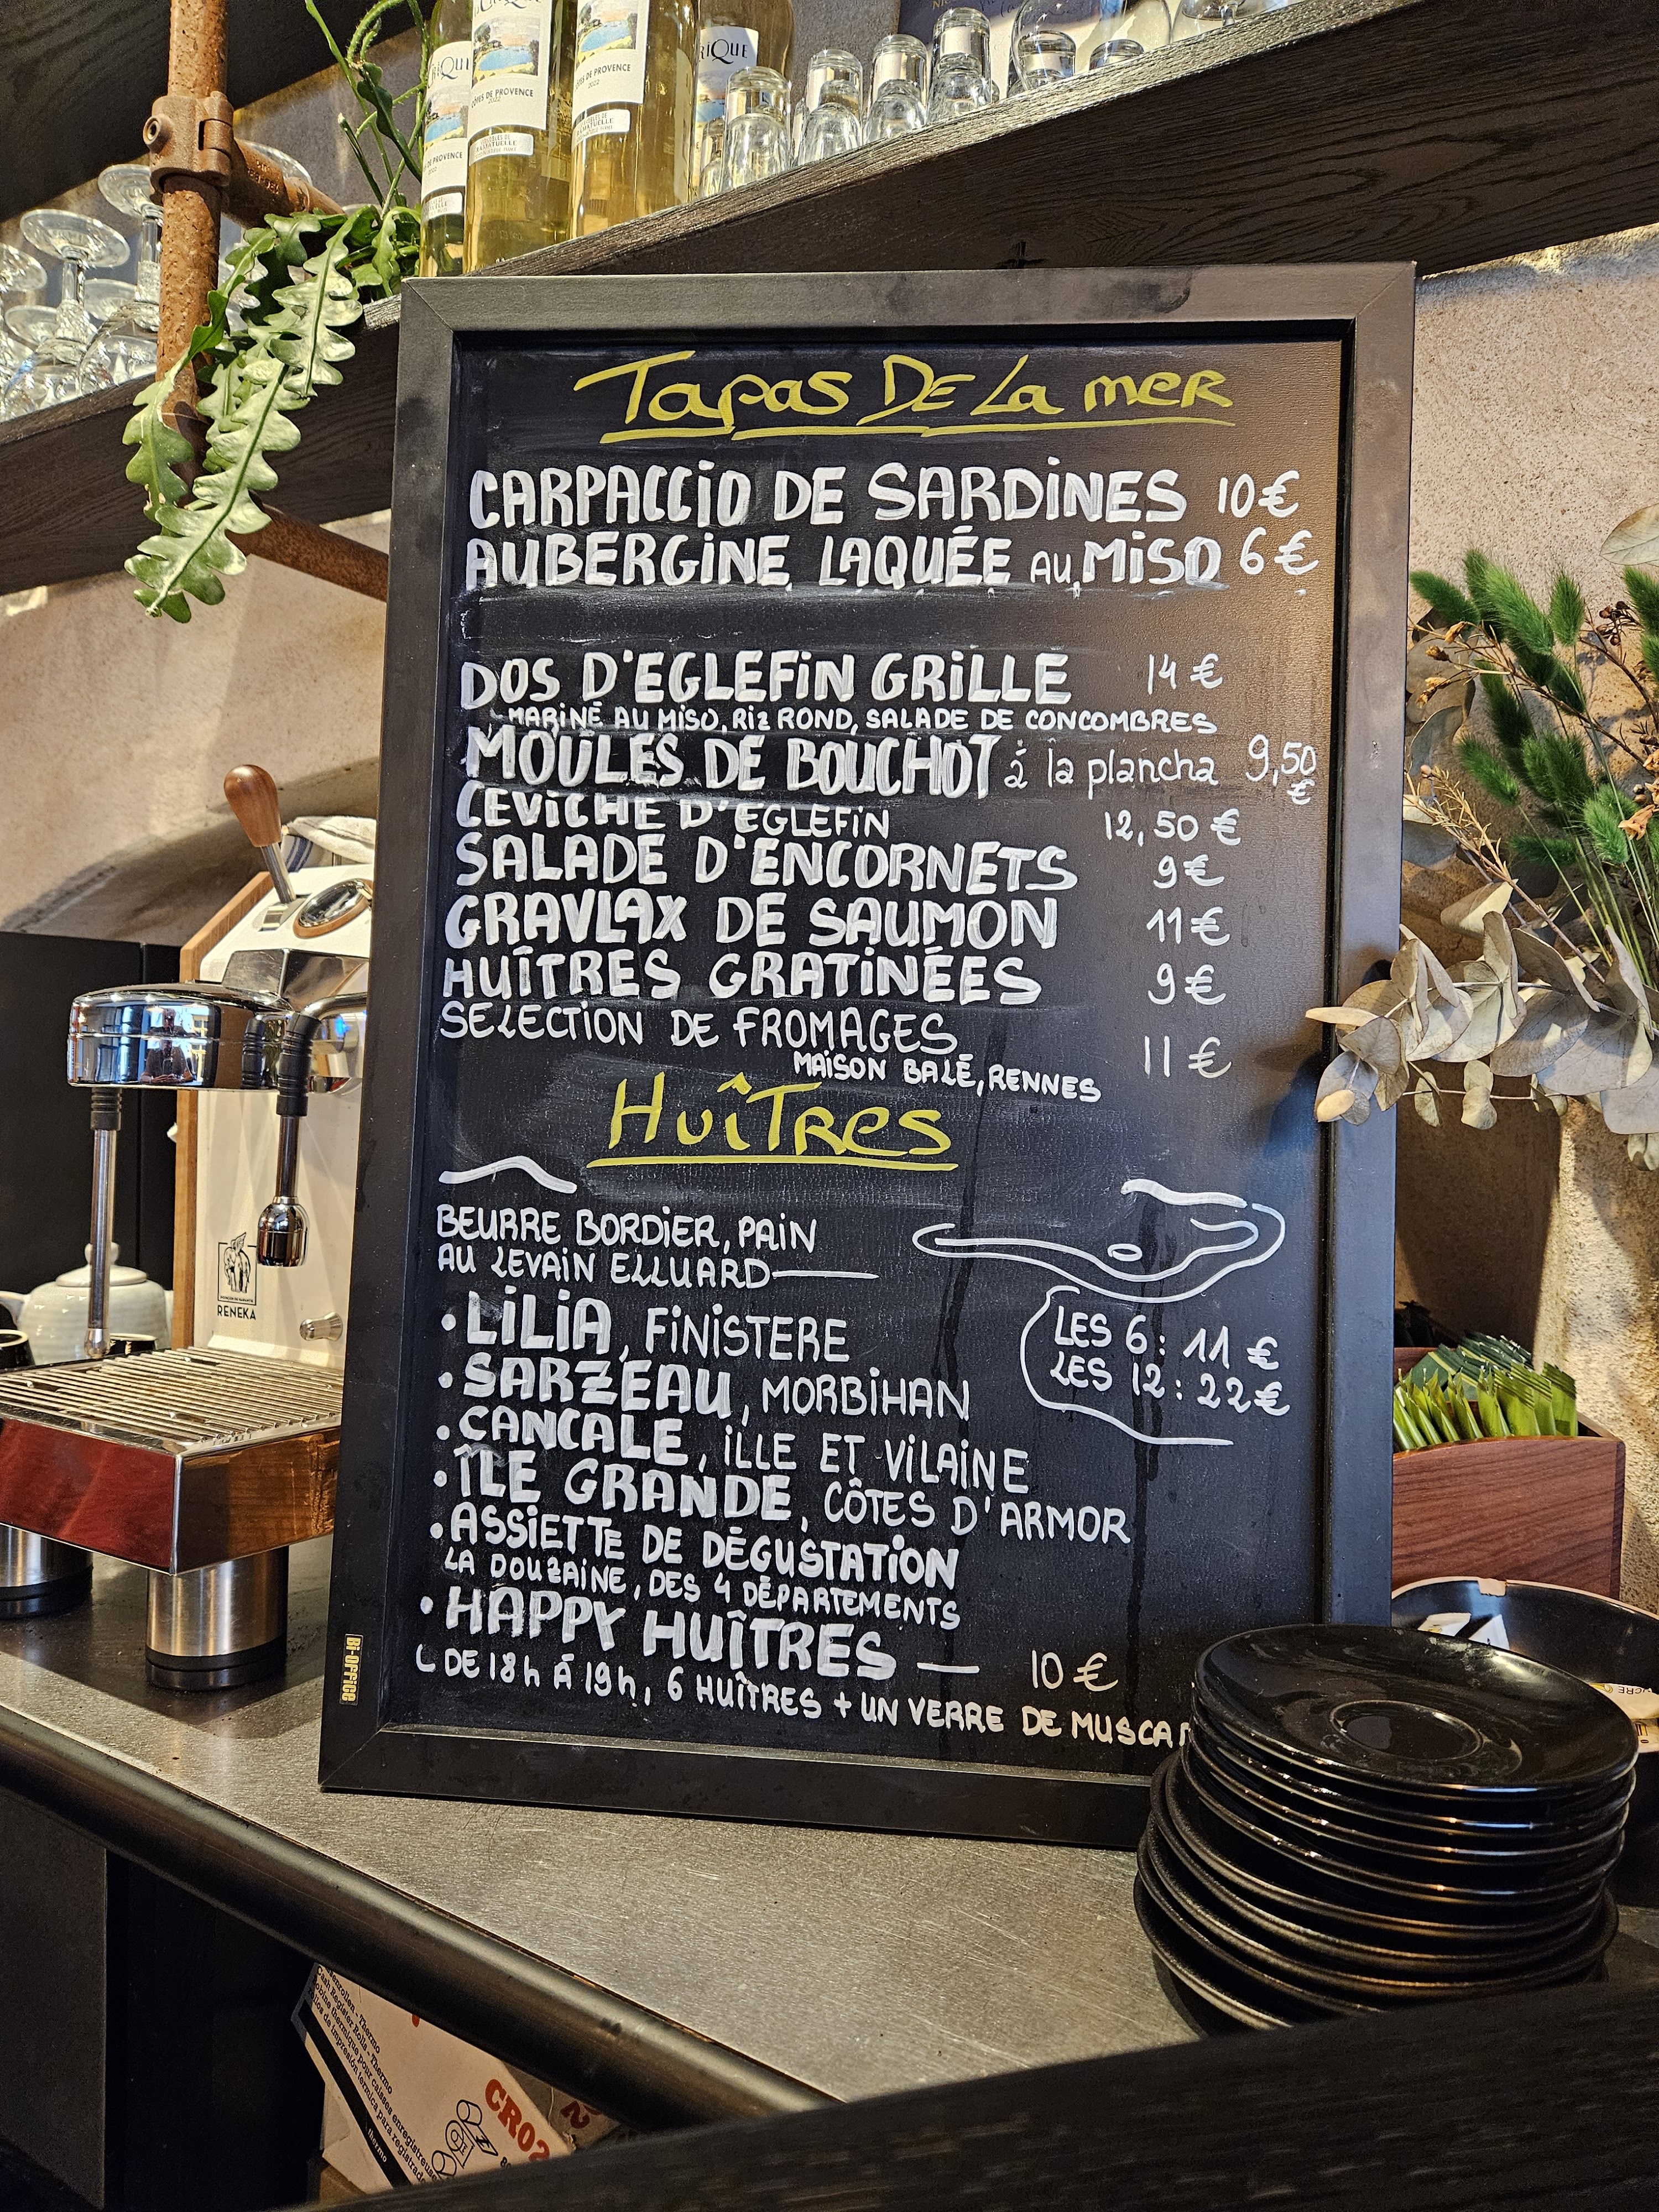 CÔTES DE PROVENCE
2022
CÔTES DE PROVENCE
2022
RIQUE
DE PROVENCE
Tapas De La mer
CARPACCIO DE SARDINES 10€
AUBERGINE LAQUÉE AU MISO 6€
DOS D'EGLEFIN GRILLE 14€
MARINÉ AU MISO, RIZ ROND, SALADE DE CONCOMBRES
MOULES DE BOUCHOT à la plancha 9,50
€
CEVICHE D'EGLEFIN 12,50€
SALADE D'ENCORNETS 9€
GRAVLAX DE SAUMON 11€
HUÎTRES GRATINÉES 9€
SELECTION DE FROMAGES 11€
MAISON BALÉ, RENNES
HUÎTRES
BEURRE BORDIER, PAIN
AU LEVAIN ELLUARD
LES 6: 11€
LES 12: 22€
• LILIA, FINISTERE
• SARZEAU, MORBIHAN
• CANCALE, ILLE ET VILAINE
• ÎLE GRANDE, CÔTES D'ARMOR
• ASSIETTE DE DÉGUSTATION
LA DOUZAINE, DES 4 DÉPARTEMENTS
• HAPPY HUÎTRES — 10€
DE 18h À 19h, 6 HUÎTRES + UN VERRE DE MUSCA
Bi-Office
RENEKA
Cash Register Rolls - Thermo
thermo